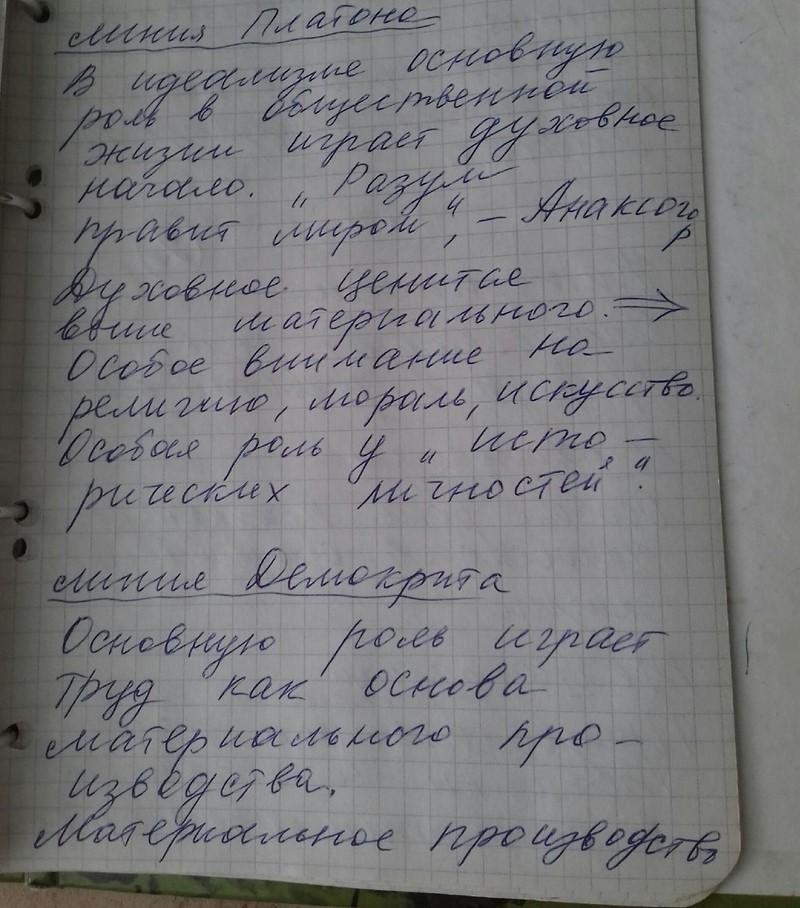 линия Платона
В идеализме основную
роль в общественной
жизни играет духовное
начало. „ Разум
правит миром“, – Анаксагор
Духовное ценится
выше материального. ⇒
Особое внимание на
религию, мораль, искусство.
Особая роль у „ исто –
рических личностей“.
линия Демокрита
Основную роль играет
труд как основа
материального про –
изводства.
Материальное производство